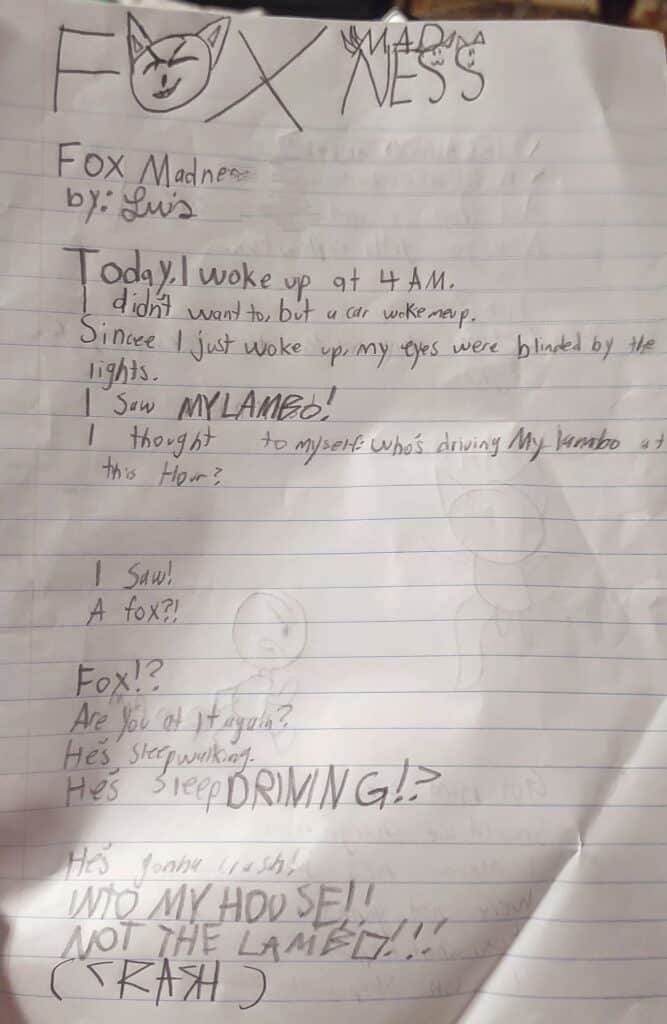 FOX MADNESS
Fox Madness
by: Luis
Today, I woke up at 4 AM.
I didn't want to, but a car woke me up.
Sincee I just woke up, my eyes were blinded by the
lights.
I Saw MY LAMBO!
I thought to myself: who's driving My lambo at
this Hour?
I Saw!
A fox?!
Fox!?
Are You at it again?
He's Sleepwalking.
He's SleepDRIVING!?
He's gonna crash!
INTO MY HOUSE!!
NOT THE LAMBO!!!
(CRASH)